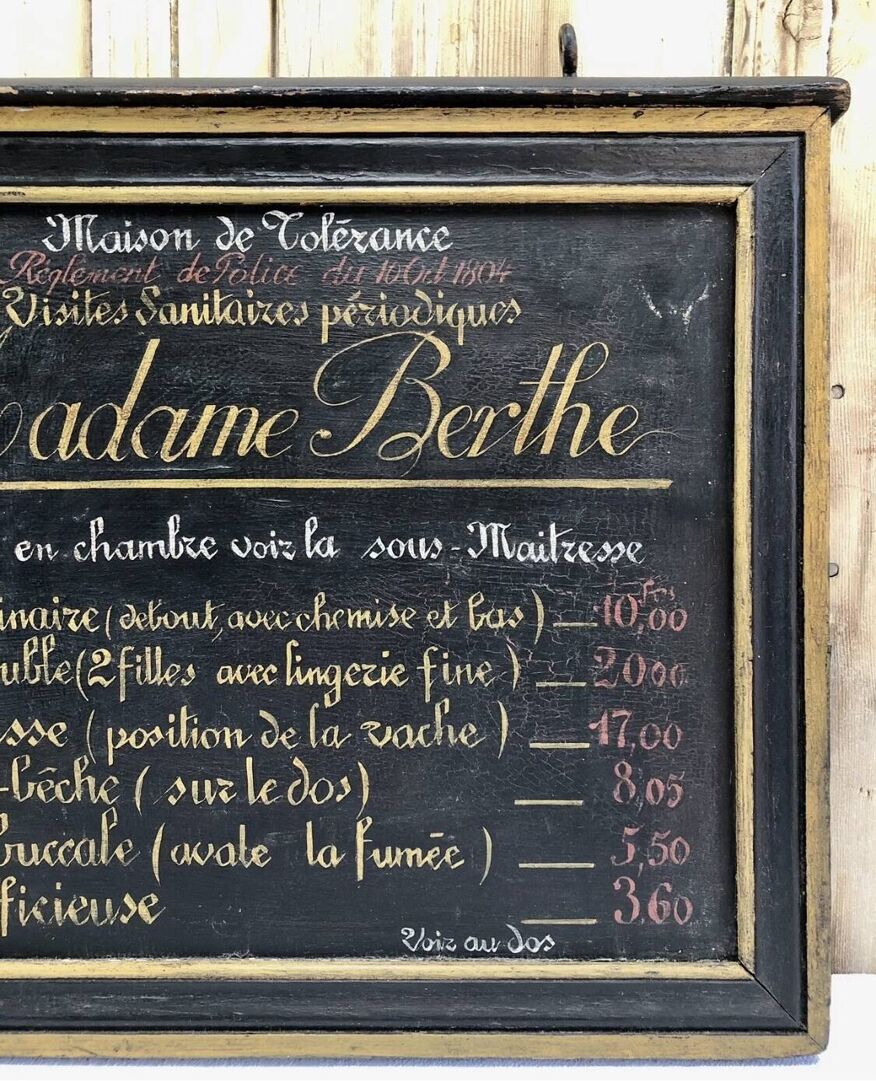 Maison de Tolérance
Réglement de Police du 10 Oct 1804
Visites Sanitaires périodiques
adame Berthe
en chambre voir la sous-Maitresse
Frs
inaire (debout, avec chemise et bas) — 10,00
uble (2 filles avec lingerie fine) — 20 00
sse (position de la vache) — 17,00
-bêche (sur le dos) — 8,05
buccale (avale la fumée) — 5,50
ficieuse — 3.60
Voir au dos